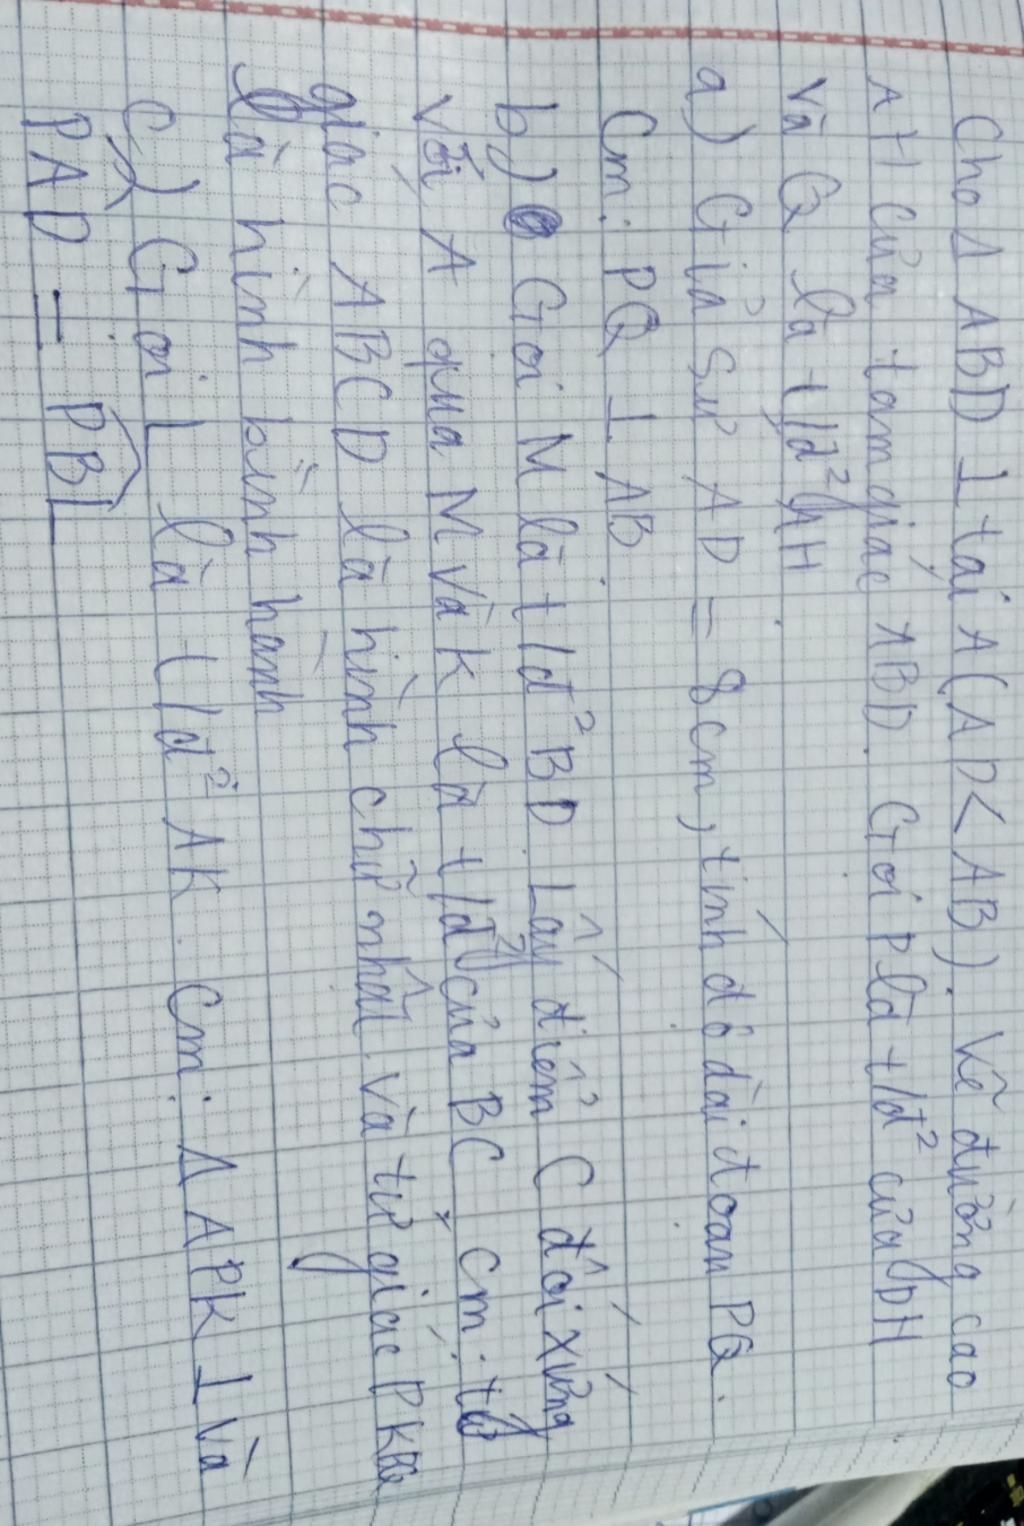 Cho Δ ABD ⊥ tại A (AD < AB). Vẽ đường cao
AH của tam giác ABD. Gọi P là t/đ² của DH
và Q là t/đ² AH.
a) Giả sử AD = 8cm, tính độ dài đoạn PQ.
Cm: PQ ⊥ AB.
b) Gọi M là t/đ² BD. Lấy điểm C đối xứng
với A qua M và K là t/đ² của BC. Cm: tứ
giác ABCD là hình chữ nhật và tứ giác PKBQ
là hình bình hành
c) Gọi L là t/đ² AK. Cm: Δ APK ⊥ và
PAD = PBL